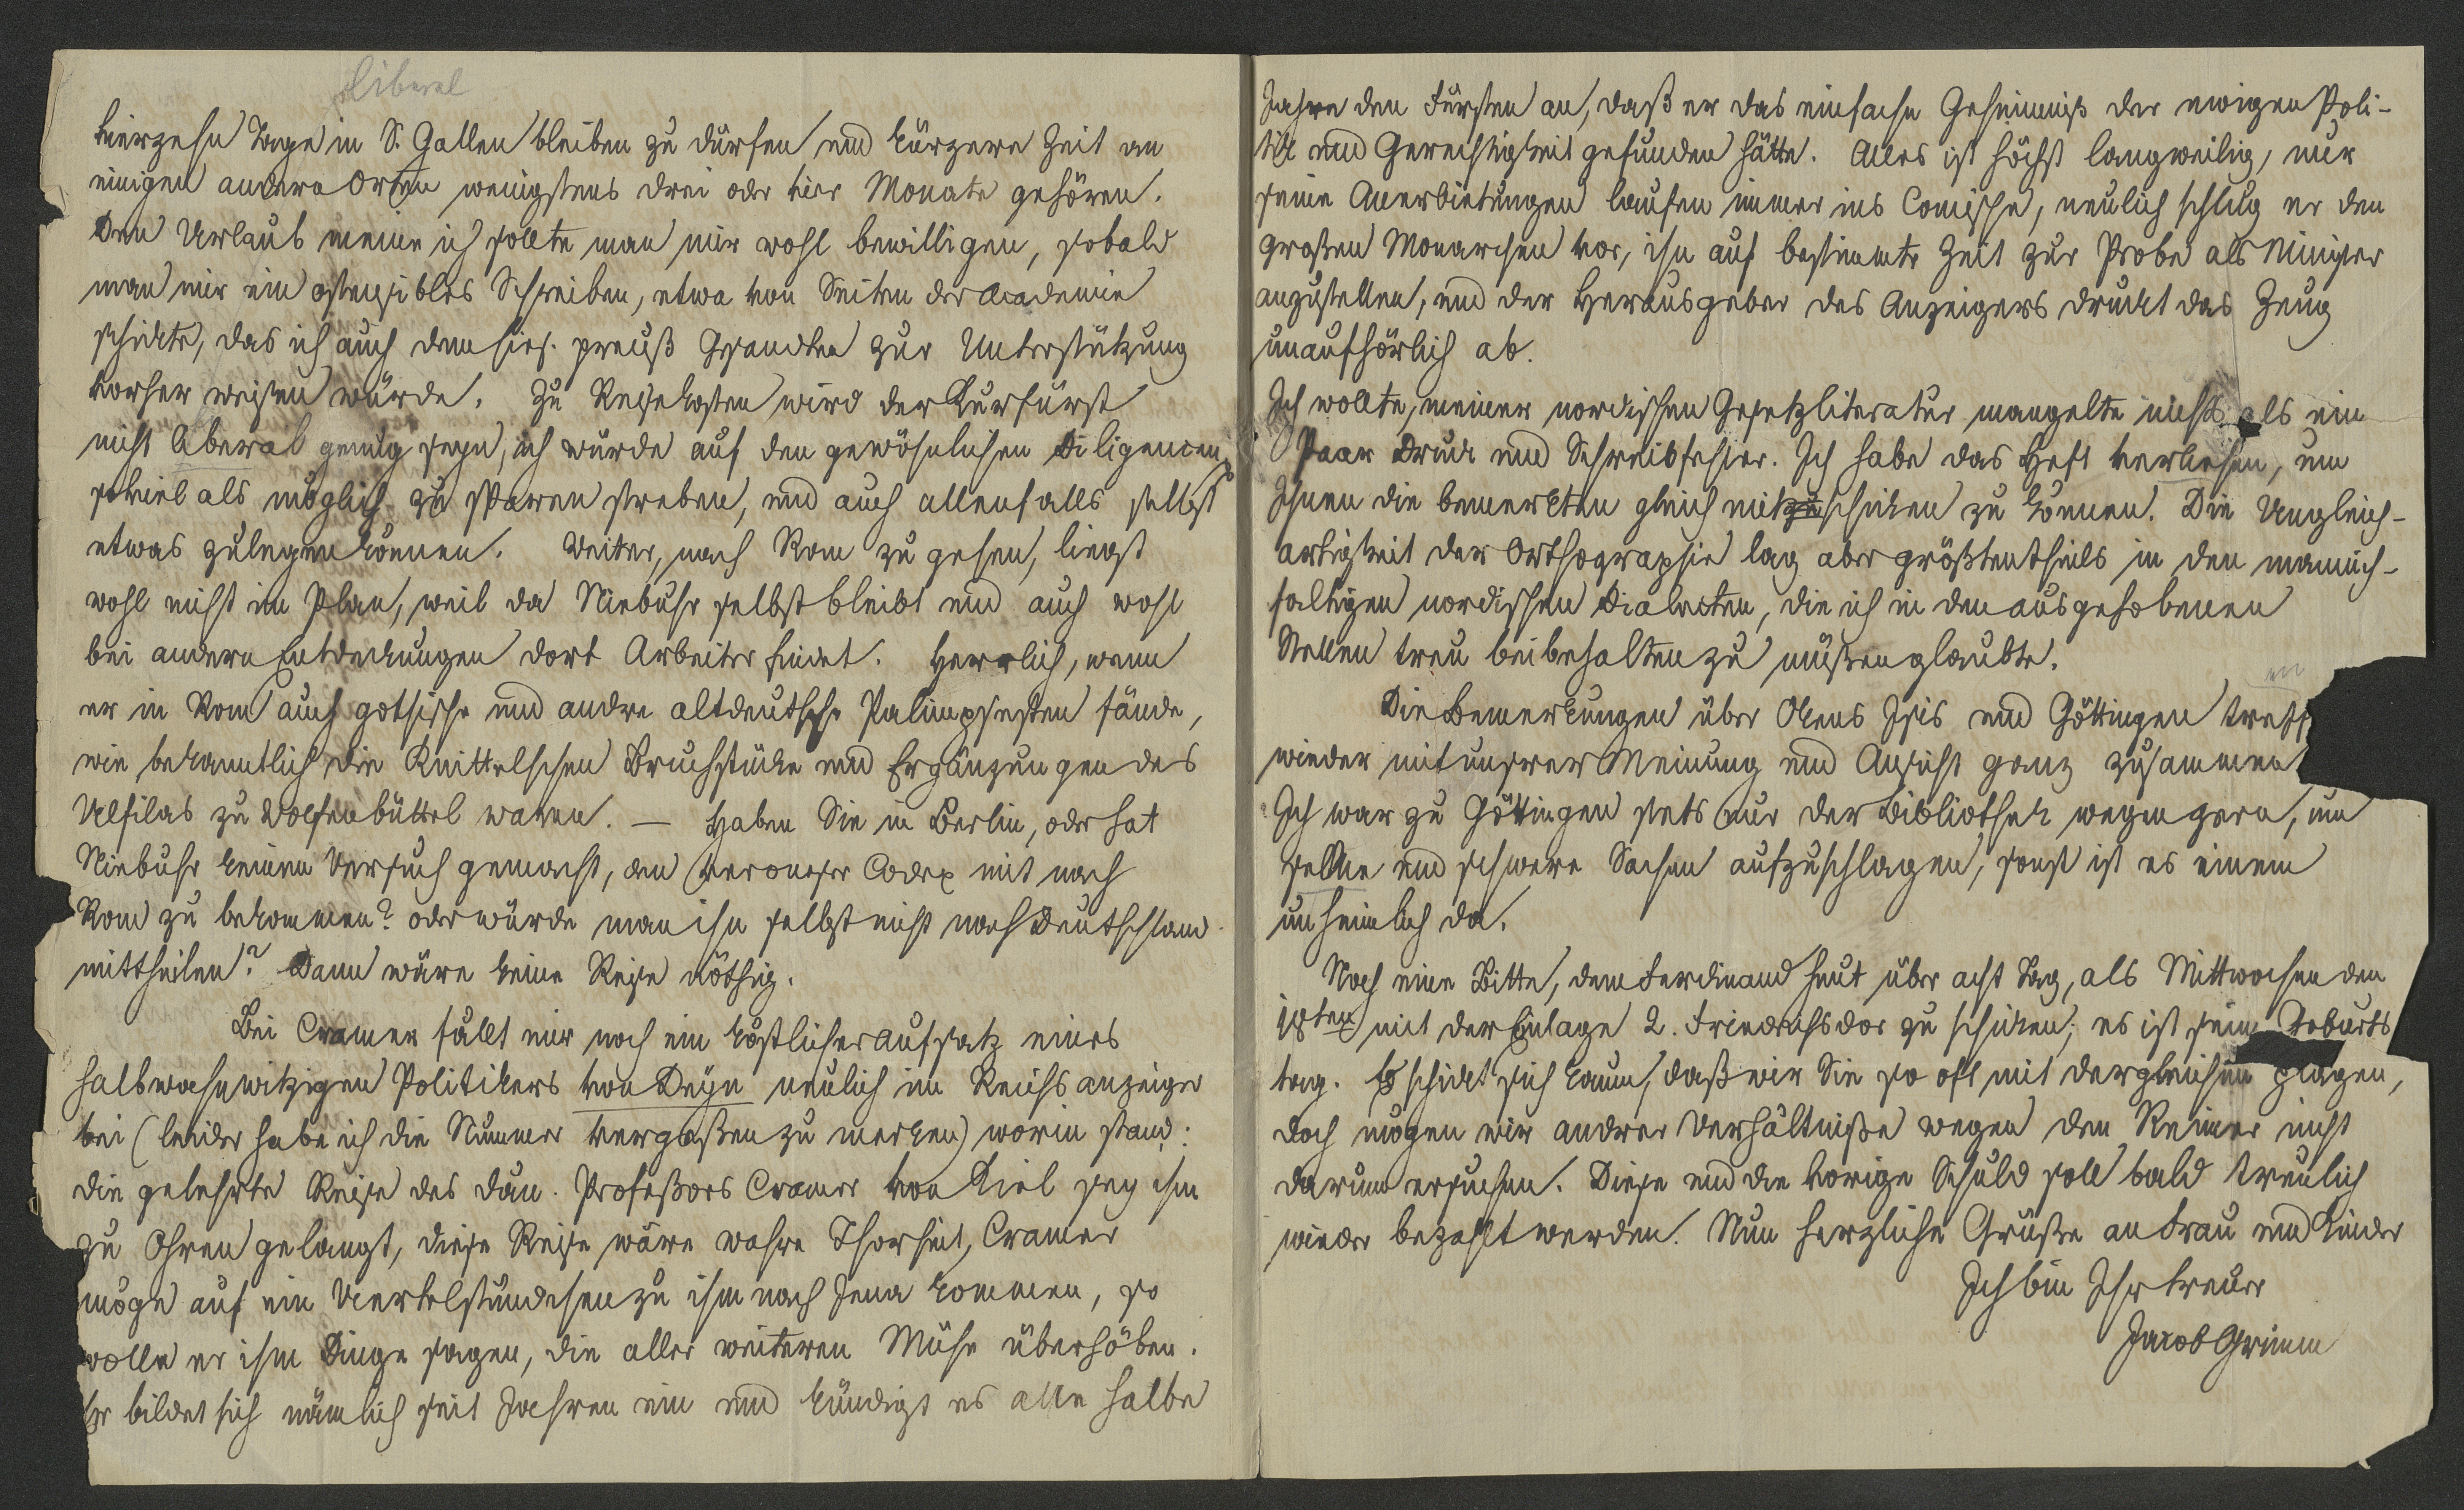 liberal
vierzehn Tage in S. Gallen bleiben zu dürfen und kürzere Zeit an
einigen andern Orten wenigstens drei oder vier Monate gehören.
Den Urlaub meine ich sollte man mir wohl bewilligen, sobald
man mir ein ostensibles Schreiben, etwa von Seiten der Academie
schickte, das ich auch dem hies. preuß Gesandten zur Unterstützung
vorher weisen würde. Zu Reisekosten wird der Kurfürst
nicht liberal genug seyn, ich würde auf den gewöhnlichen Diligencen
soviel als möglich zu sparen streben, und auch allenfalls selbst
etwas zulegen können. Weiter, nach Rom zu gehen, liegt
wohl nicht im Plan, weil da Niebuhr selbst bleibt und auch wohl
bei andern Entdeckungen dort Arbeiter findet. Herrlich, wenn
er in Rom auch gothische und andre altdeutsche Palimpsesten fände,
wie bekanntlich die Knittelschen Bruchstücke und Ergänzungen des
Ulfilas zu Wolfenbüttel waren. — Haben Sie in Berlin, oder hat
Niebuhr keinen Versuch gemacht, den veroneser Codex mit nach
Rom zu bekommen? oder würde man ihn selbst nicht nach Deutschland
mittheilen? Dann wäre keine Reise nöthig.
Bei Cramer fällt mir noch ein köstlicher Aufsatz eines
halbwahnwitzigen Politikers von Deyn neulich im Reichsanzeiger
bei (leider habe ich die Nummer vergeßen zu merken) worin stand:
die gelehrte Reise des dän. Profeßors Cramer von Kiel sey ihm
zu Ohren gelangt, diese Reise wäre wahre Thorheit, Cramer
möge auf ein Viertelstündchen zu ihm nach Jena kommen, so
wolle er ihm Dinge sagen, die aller weiteren Mühe überhöben.
Er bildet sich nämlich seit Jahren ein und kündigt es alle halbe
Jahre den Fürsten an, daß er das einfache Geheimniß der ewigen Poli-
tik und Gerechtigkeit gefunden hätte. Alles ist höchst langweilig, nur
seine Anerbietungen laufen immer ins Comische, neulich schlug er den
großen Monarchen vor, ihn auf bestimmte Zeit zur Probe als Minister
anzustellen, und der Herausgeber des Anzeigers druckt das Zeug
unaufhörlich ab.
Ich wollte, meiner nordischen Gesetzliteratur mangelte nichts als ein
Paar Druck und Schreibfehler. Ich habe das Heft verliehen, um
Ihnen die bemerkten gleich mitzuschicken zu können. Die Ungleich-
artigkeit der Orthographie lag aber größtentheils in den mannich-
faltigen nordischen Dialecten, die ich in den ausgehobenen
Stellen treu beibehalten zu müßen glaubte.
en
Die Bemerkungen über Okens Isis und Göttingen treff
wieder mit unserer Meinung und Ansicht ganz zusammen
Ich war zu Göttingen stets nur der Bibliothek wegen gern, um
seltne und schwere Sachen aufzuschlagen, sonst ist es einem
unheimlich da.
Noch eine Bitte, dem Ferdinand heut über acht Tag, als Mittwochen den
18ten mit der Einlage 2. Friedrichsdor zu schicken; es ist sein Geburts
tag. Es schickt sich kaum, daß wir Sie so oft mit dergleichen plagen,
doch mögen wir andrer Verhältniße wegen den Reimer nicht
darum ersuchen. Diese und die vorige Schuld soll bald treulich
wieder bezahlt werden. Nun herzliche Grüße an Frau und Kinder
Ich bin Ihr treuer
Jacob Grimm